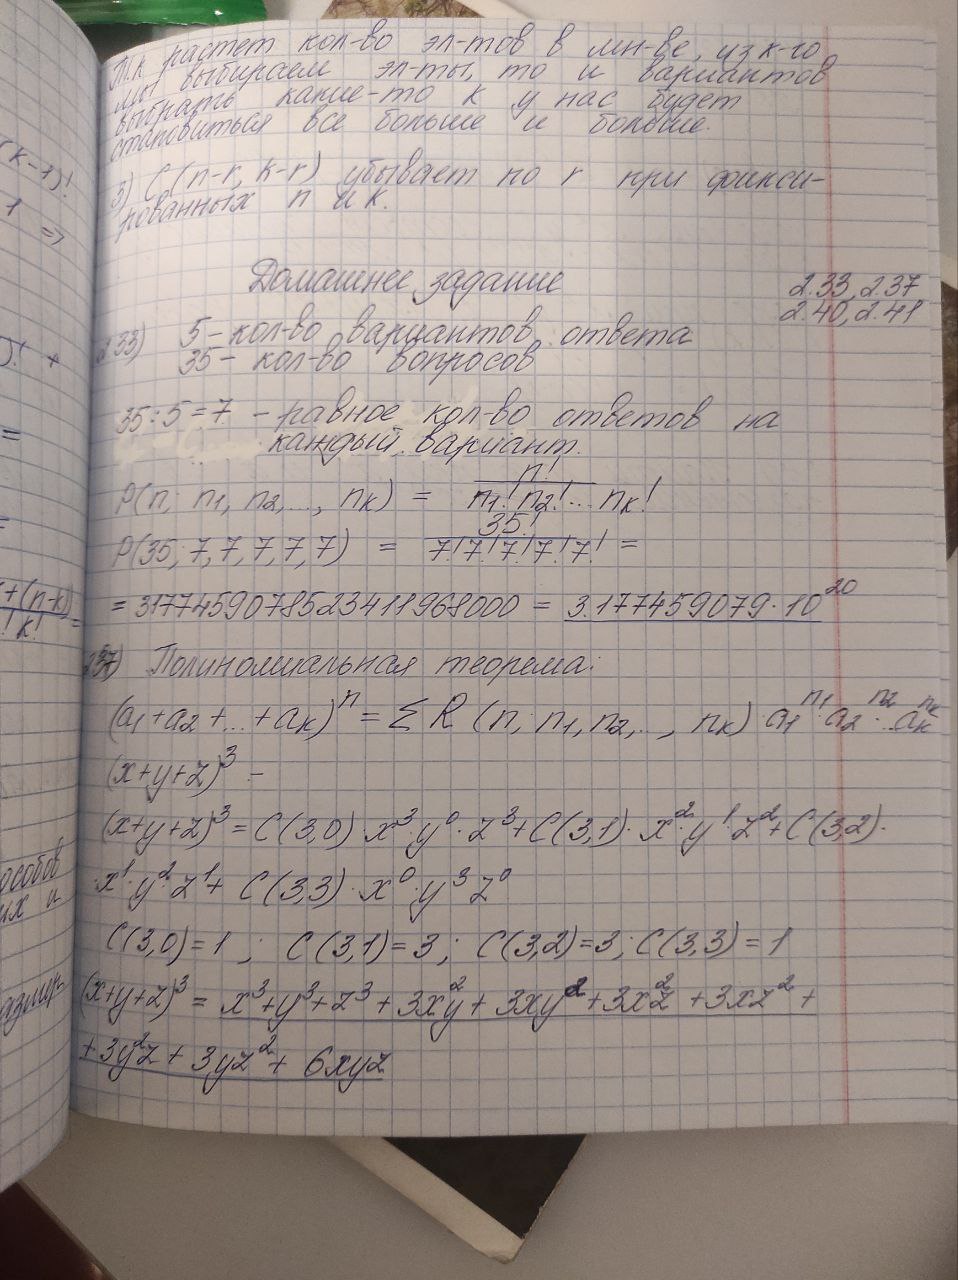 Т.к растет кол-во эл-тов в мн-ве, из к-го
мы выбираем эл-ты, то и вариантов
выбрать какие-то k у нас будет
становиться все больше и больше.
(k-1)!
1
=>
3) C(n-r, k-r) убывает по r при фикси-
рованных n и k.
Домашнее задание
2.33, 2.37
2.40, 2.41
)! +
2.33) 5 - кол-во вариантов ответа
35 - кол-во вопросов
35:5=7 - равное кол-во ответов на
=
каждый вариант.
P(n; n1, n2,..., nk) = n! / n1! n2! ... nk!
P(35; 7,7,7,7,7) = 35! / 7!7!7!7!7! =
+(n-k)
! k! =
= 317745907852341196 8000 = 3.177459079·10^20
2.37) Полиномиальная теорема:
(a1+a2+...+ak)^n = Σ R (n; n1, n2,..., nk) a1^n1 · a2^n2 · ... ak^nk
(x+y+z)^3 -
(x+y+z)^3 = C(3,0) · x^3 · y^0 · z^3 + C(3,1) · x^2 · y^1 · z^2 + C(3,2) ·
особов
их и
· x^1 · y^2 · z^1 + C(3,3) · x^0 · y^3 z^0
C(3,0)=1 ; C(3,1)=3 ; C(3,2)=3 ; C(3,3)=1
(x+y+z)^3 = x^3+y^3+z^3+3x^2y+3xy^2+3x^2z+3xz^2+
+3y^2z+3yz^2+6xyz